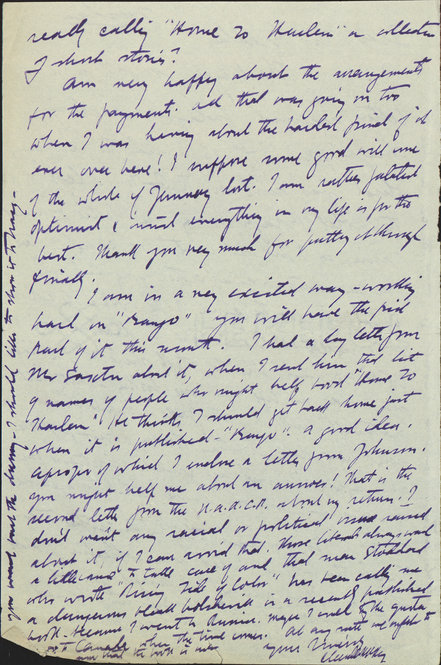 really calling "Home to Harlem" a collection
of short stories?
Am very happy about the arrangements
for the payments. All that was going on too
when I was having about the hardest period of it
ever over here! I suppose some good will come
of the whole of January lost. I am rather fatalist
optimist, & mind everything in my life is for the
best. Thank you very much for putting it through
finally.
I am in a very excited way - working
hard on "Banjo" you will have the first
part of it this month. I had a long letter from
Mr Saxton about it, when I sent him that list
of names of people who might help boost "Home to
Harlem". He thinks I should get back home just
when it is published - "Banjo". a good idea.
apropos of which I enclose a letter from Johnson.
you might help me about an answer! That is the
second letter from the N.A.A.C.P. about my return. I
don't want any racial or political raised
about it, if I can avoid that. Those always want
a to take care of and that man Stoddard
who wrote "Rising Tide of Color" has been calling me
a dangerous black bolshevik in a recently published
work - because I went to Russia. maybe I will the quota
Canada when the time comes. At any rate we ought to
now that the book is
Yours Sincerely
Claude McKay
you would send the dummy, I should like to show it to